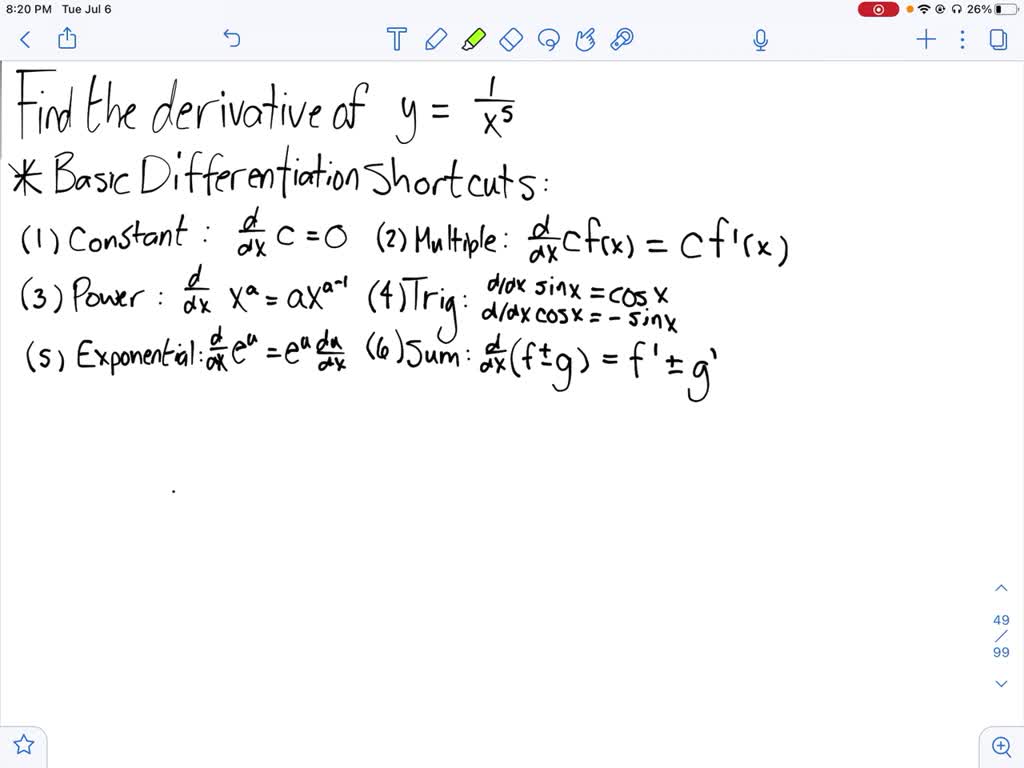 8:20 PM Tue Jul 6 26%
Find the derivative of y = 1/x⁵
* Basic Differentiation Shortcuts:
(1) Constant: d/dx c = 0 (2) Multiple: d/dx cf(x) = cf'(x)
(3) Power: d/dx xᵃ = axᵃ⁻¹ (4) Trig: d/dx sinx = cosx
d/dx cosx = -sinx
(5) Exponential: d/dx eᵘ = eᵘ du/dx (6) Sum: d/dx (f±g) = f' ± g'
49
/
99